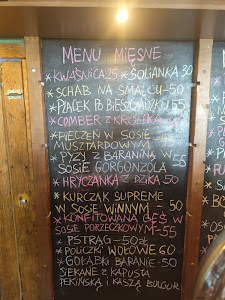 MENU MIĘSNE
*KWAŚNICA 25 *SOLIANKA 30
*SCHAB NA SMALCU-50
*PLACEK PO BIESZCZADZKU 55
*COMBER Z KRÓLIKA
*PIECZEŃ W SOSIE
MUSZTARDOWYM
*PYZY Z BARANINĄ W 55
SOSIE GORGONZOLA
*HRYCZANKA Z DZIKA 50
*KURCZAK SUPREME
W SOSIE WINNYM - 50
*KONFITOWANA GĘŚ W
SOSIE PORZECZKOWYM-55
*PSTRĄG-50zł
*POLICZKI WOŁOWE 60
*GOŁĄBKI BARANIE-50
SIEKANE Z KAPUSTĄ
PEKIŃSKĄ I KASZĄ BULGUR